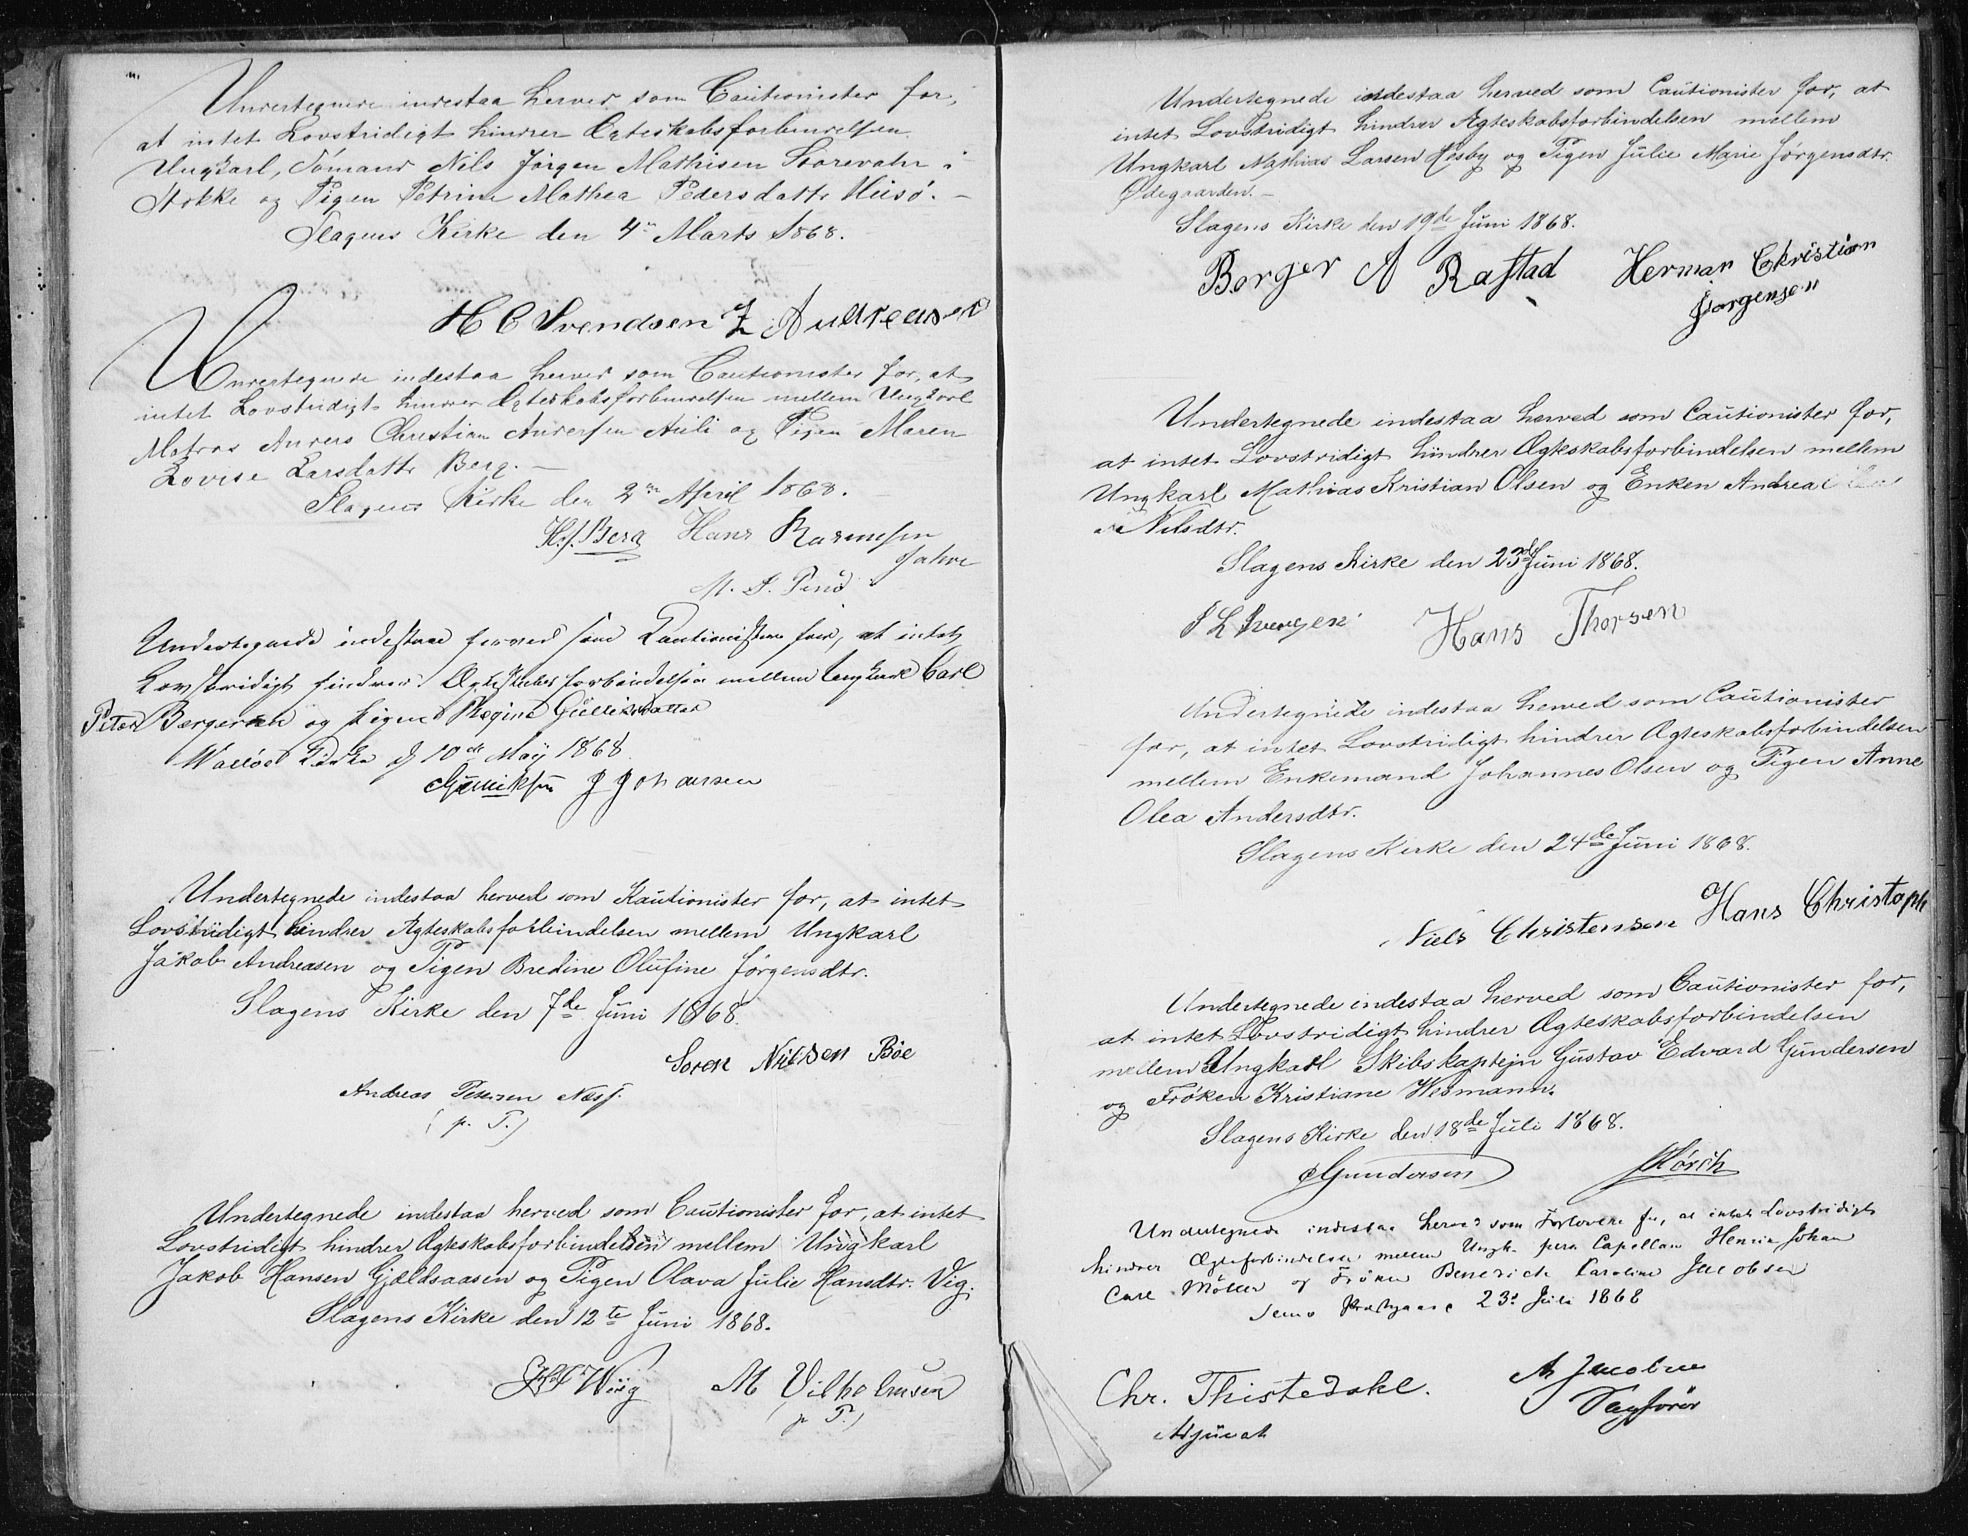 Undertegnede indestaa herved som Cautionister for,
at intet Lovstridigt hindrer Ægteskabsforbindelsen
Ungkarl, Sömand Nils Jörgen Mathisen Storevahr i
Stokke og Pigen Petrine Mathea Pedersdattr Husö. —
Slagens Kirke den 4de Marts 1868.
H C Svendsen Z Andreasen
Undertegnede indestaa herved som Cautionister for, at
intet Lovstridigt hindrer Ægteskabsforbindelsen mellem Ungkarl
Matros Anders Christian Andersen Auli og Pigen Maren
Lovise Larsdattr Berg. —
Slagens Kirke den 2den April 1868.
H. J. Berg Hans Rasmusen
Jahre
M. P.
Undertegnede indestaae herved som Cautionister for, at intet
Lovstridigt hindrer Ægteskabsforbindelsen mellem Ungkarl Carl
Peter Bergersen og Pigen Regine Gullikdatter
Walløe Kirke d 10de May 1868
Gulliksen J Johansen
Undertegnede indestaa herved som Kautionister for, at intet
Lovstridigt hindrer Ægteskabsforbindelsen mellem Ungkarl
Jakob Andreasen og Pigen Bredine Olufine Jørgensdtr.
Slagens Kirke den 7de Juni 1868.
Soren Nilsen Böe
Andreas Petersen Næss.
( p. P.)
Undertegnede indestaa herved som Cautionister for, at intet
Lovstridigt hindrer Ægteskabsforbindelsen mellem Ungkarl
Jakob Hansen Gjældsaasen og Pigen Olava Julie Hansdtr. Vig.
Slagens Kirke den 12te Juni 1868.
Wiig M Vilhelmsen
(p P.)
Undertegnede indestaa herved som Cautionister for, at
intet Lovstridigt hindrer Ægteskabsforbindelsen mellem
Ungkarl Mathias Larsen Hesby og Pigen Julie Marie Jørgensdtr.
Ødegaarden. —
Slagens Kirke den 19de Juni 1868.
Berger A Rastad Herman Christian
Jorgensen
Undertegnede indestaa herved som Cautionister for,
at intet Lovstridigt hindrer Ægteskabsforbindelsen mellem
Ungkarl Mathias Kristian Olsen og Enken Andrea
Nilsdtr.
Slagens Kirke den 23de Juni 1868.
Hans Thorsen
Undertegnede indestaa herved som Cautionister
for, at intet Lovstridigt hindrer Ægteskabsforbindelsen
mellem Enkemand Johannes Olsen og Pigen Anne
Olea Andersdtr.
Slagens Kirke den 24de Juni 1868.
Niels Christensen Hans Christoph
Undertegnede indestaa herved som Cautionister for,
at intet Lovstridigt hindrer Ægteskabsforbindelsen
mellem Ungkarl Skibskaptejn Gustav Edvard Gundersen
og Frøken Kristiane Wesmann.
Slagens Kirke den 18de Juli 1868.
Gundersen Hørch
Undertegnede indestaa herved som Forlovere for, at intet Lovstridigt
hindrer Ægteforbindelse mellem Ungk. pers Capellan Henrik Johan
Carl Möller og Fröken Benedicte Caroline Jacobsen
Sems Præstgaard 23d Juli 1868
Chr. Thistedahl. A Jacobsen
Adjunct Sagförer